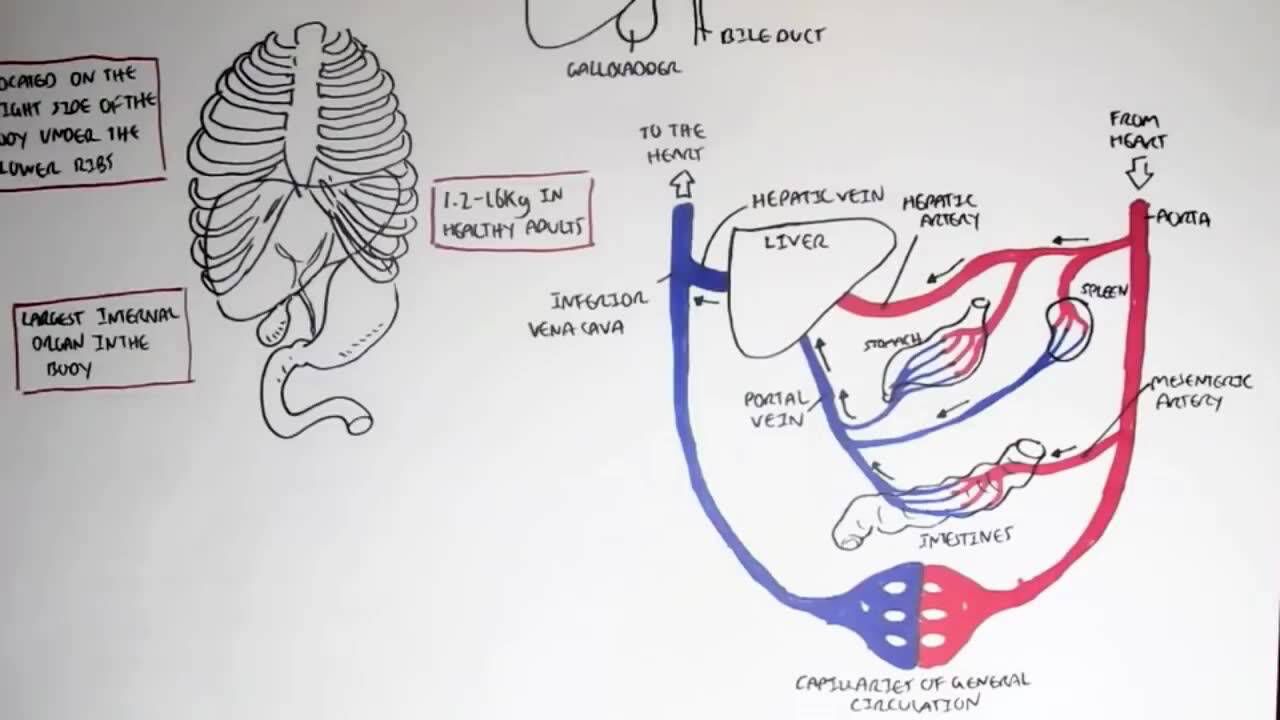 BILE DUCT
GALLBLADDER
OCATED ON THE
IGHT SIDE OF THE
ODY UNDER THE
LOWER RIBS
1.2-1.6Kg IN
HEALTHY ADULTS
LARGEST INTERNAL
ORGAN IN THE
BODY
TO THE
HEART
FROM
HEART
HEPATIC VEIN
HEPATIC
ARTERY
AORTA
LIVER
INFERIOR
VENA CAVA
SPLEEN
STOMACH
PORTAL
VEIN
MESENTERIC
ARTERY
INTESTINES
CAPILLARIES OF GENERAL
CIRCULATION